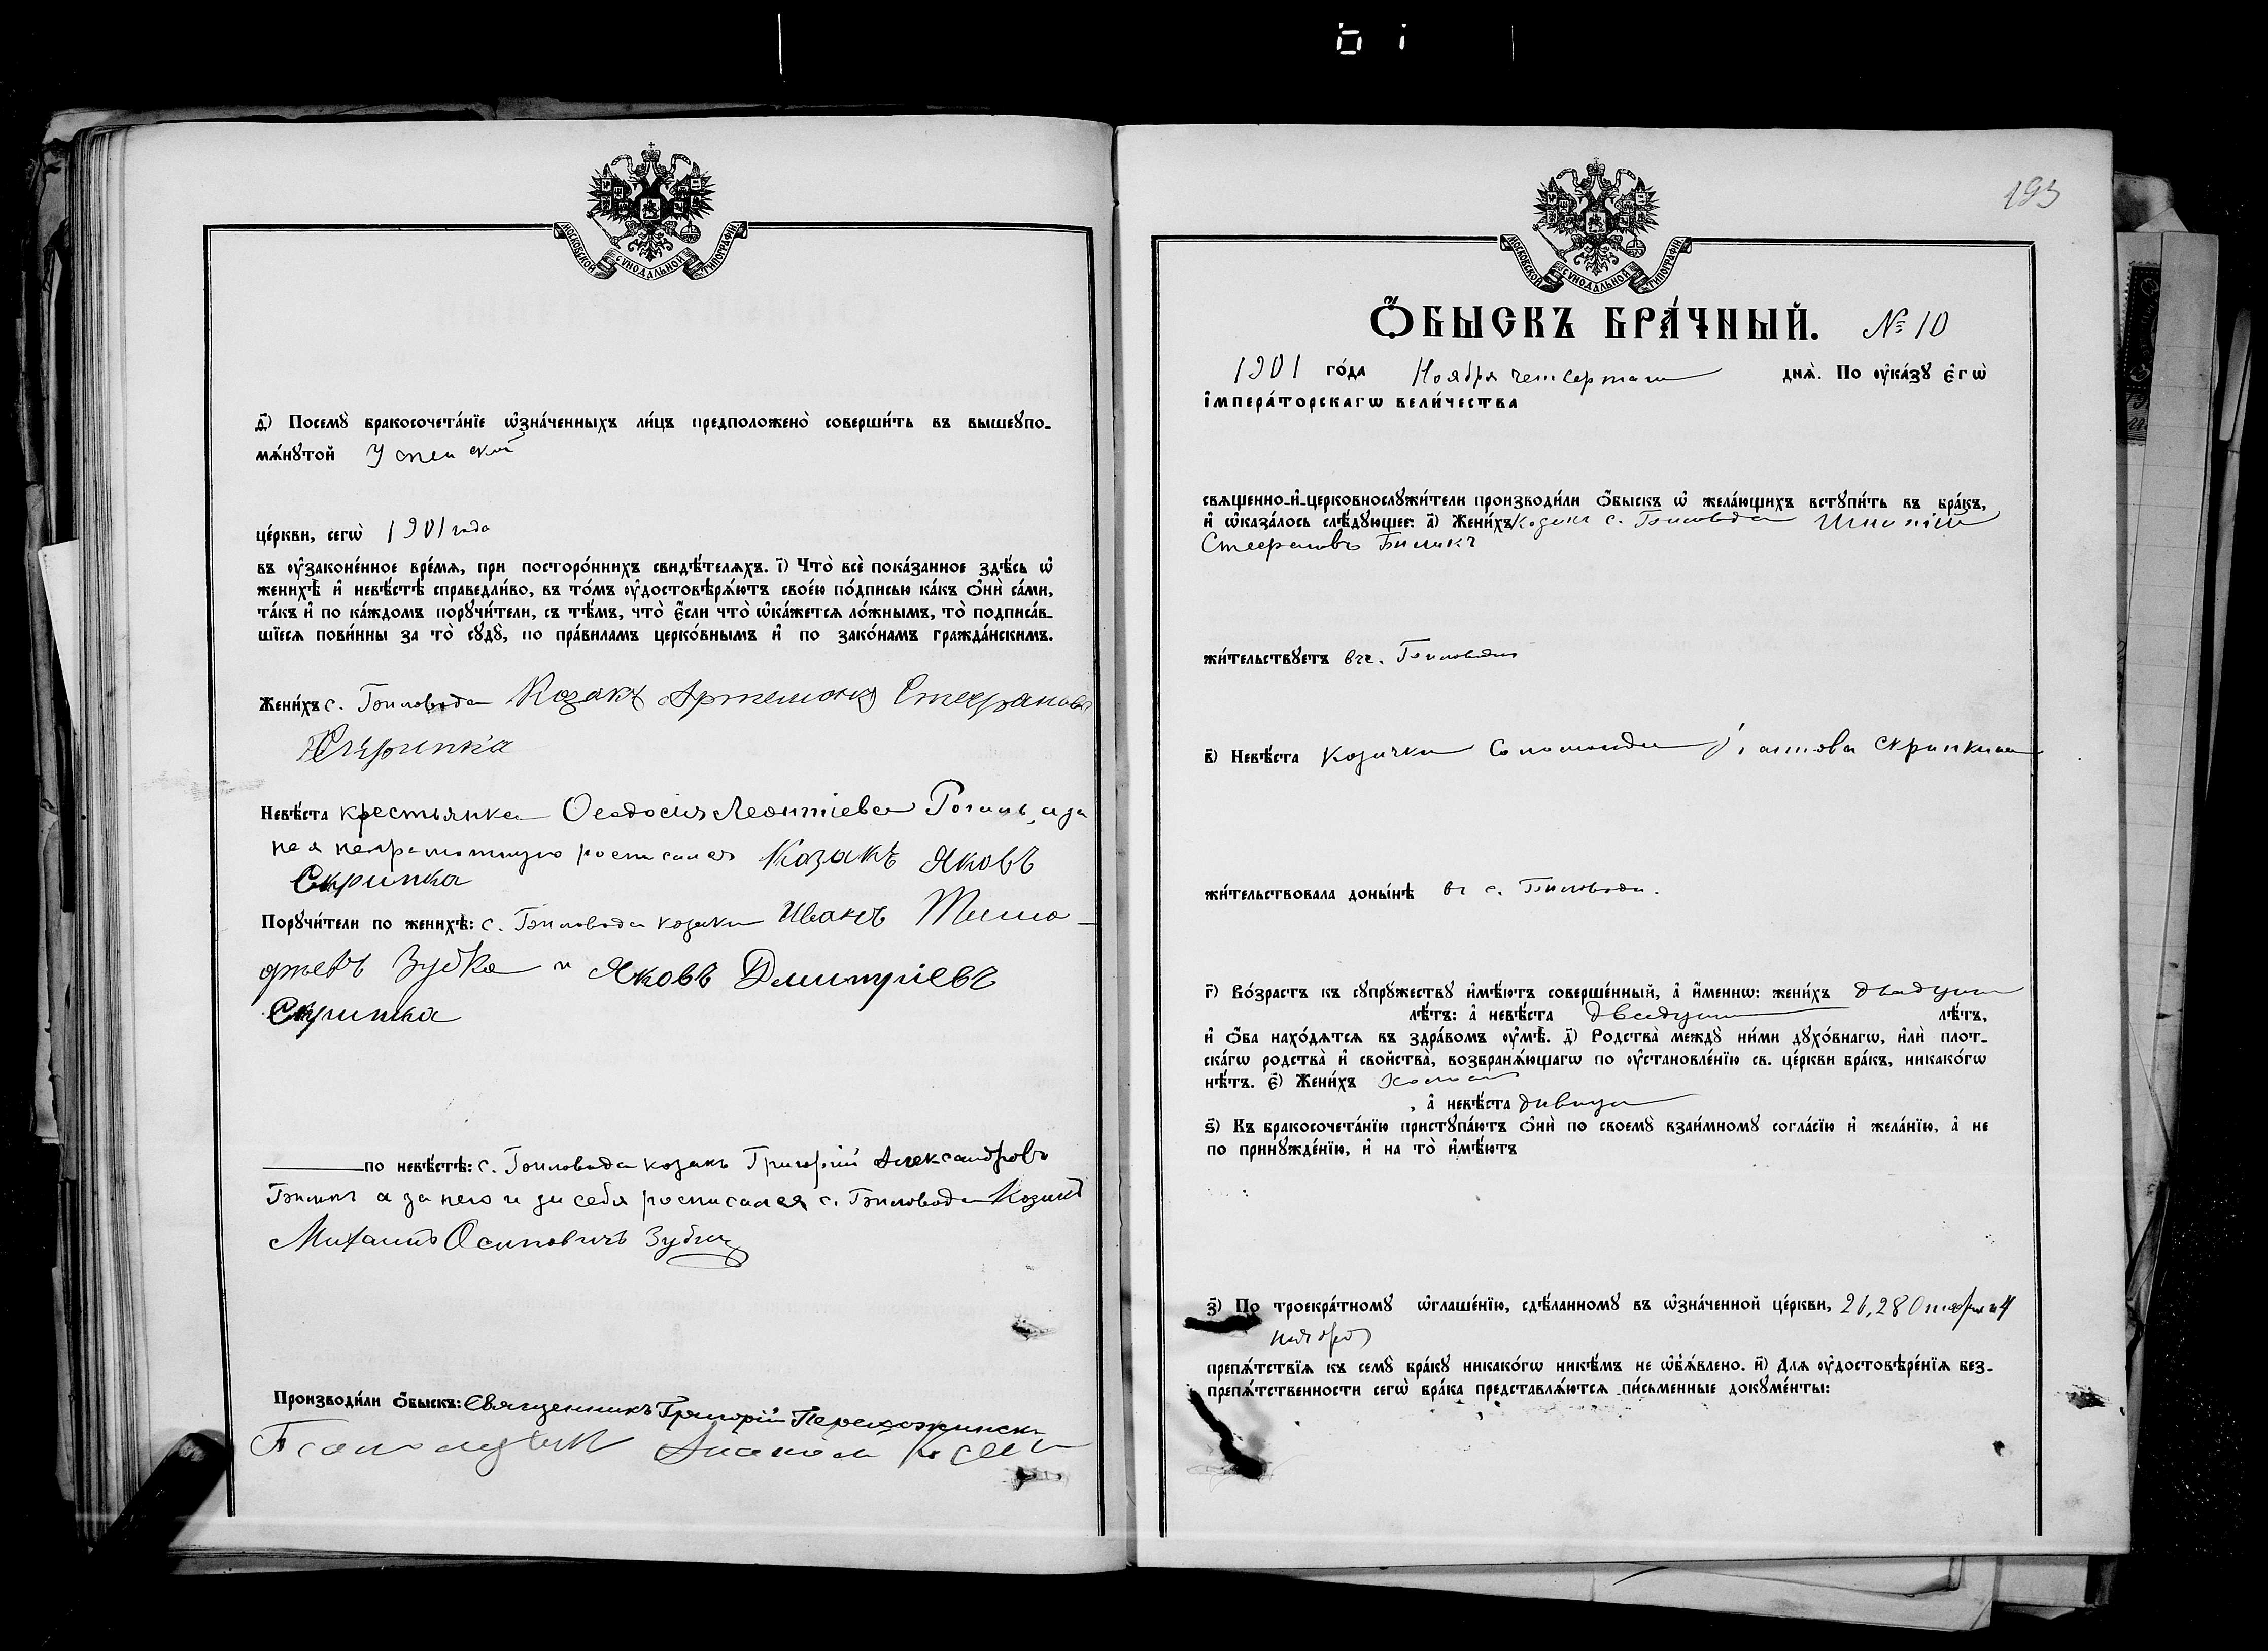 МОСКОВСКОЙ СѴНОДАЛЬНОЙ ТИПОГРАФІИ
д҃) Посемꙋ̀ бракосочета́нїе ѡ҆зна́ченныхъ ли́цъ предположено̀ соверши́ть въ вышеꙋпо-
мѧ́нꙋтой Успенской
це́ркви, сегѡ̀ 1901 года
въ ᲂу҆законе́нное вре́мѧ, при посторо́ннихъ свидѣ́телѧхъ. і҃) Что̀ всѐ пока́занное здѣ́сь ѡ҆
женихѣ̀ и҆ невѣ́стѣ справедли́во, въ то́мъ ᲂу҆достовѣрѧ́ютъ свое́ю по́дписью ка́къ ѻ҆нѝ са́ми,
та́къ и҆ по ка́ждомъ порꙋчи́тели, съ тѣ́мъ, что̀ є҆́сли что̀ ѡ҆ка́жетсѧ ло́жнымъ, то̀ подписа́в-
шїесѧ пови́нны за то̀ сꙋдꙋ̀, по пра́виламъ церко́внымъ и҆ по зако́намъ гражда́нскимъ.
Жени́хъ с. Биловода Козакъ Артемонъ Стефановъ
Скрипка
Невѣ́ста крестьянка Ѳеодосія Леонтіева Рогаль, а за
нея неграмотную росписался Козакъ Яковъ
Скрипка
Порꙋчи́тели по женихѣ̀: с. Биловода козаки Иванъ Тимо-
фѣевъ Зубко и Яковъ Дмитріевъ
Скрипка
по невѣ́стѣ: с. Биловода козакъ Григорій Александровъ
Биликъ а за него и за себя росписался с. Биловода Козакъ
Михаилъ Осиповичъ Зубко
Производи́ли ѻ҆́быскъ: Священникъ Григорій
Псаломщикъ
193
МОСКОВСКОЙ СѴНОДАЛЬНОЙ ТИПОГРАФІИ
Ѻ҆́БЫСКЪ БРА́ЧНЫЙ. № 10
1901 го́да Ноября четвертаго днѧ̀. По ᲂу҆ка́зꙋ є҆гѡ̀
і҆мпера́торскагѡ вели́чества
свѧщенно-и҆-церковнослꙋжи́тели производи́ли ѻ҆́быскъ ѡ҆ жела́ющихъ встꙋпи́ть въ бра́къ,
и҆ ѡ҆каза́лось слѣ́дꙋющее: а҃) Жени́хъ Козакъ с. Биловода
Стефановъ Биликъ
жи́тельствꙋетъ въ с. Биловода
в҃) Невѣ́ста Козачка Соломонида Скрипкина
жи́тельствовала доны́нѣ въ с. Биловода.
г҃) Во́зрастъ къ сꙋпрꙋ́жествꙋ и҆мѣ́ютъ соверше́нный, а҆ и҆́менно: жени́хъ двадцати
лѣ́тъ: а҆ невѣ́ста двадцати лѣ́тъ,
и҆ ѻ҆́ба нахо́дѧтсѧ въ здра́вомъ ᲂу҆мѣ̀. д҃) Родства̀ междꙋ̀ ни́ми дꙋхо́внагѡ, и҆лѝ плот-
ска́гѡ родства̀ и҆ свойства̀, возбранѧ́ющагѡ по ᲂу҆становле́нїю св. це́ркви бра́къ, никако́гѡ
нѣ́тъ. є҃) Жени́хъ холостъ
, а҆ невѣ́ста дѣвица
ѕ҃) Къ бракосочета́нїю пристꙋпа́ютъ ѻ҆нѝ по своемꙋ̀ взаи́мномꙋ согла́сїю и҆ жела́нїю, а҆ не
по принꙋжде́нїю, и҆ на то̀ и҆мѣ́ютъ
з҃) По троекра́тномꙋ ѡ҆глаше́нїю, сдѣ́ланномꙋ въ ѡ҆зна́ченной це́ркви, 21, 28 Октября и 4
ноября
препѧ́тствїѧ къ семꙋ̀ бра́кꙋ никако́гѡ никѣ́мъ не ѡ҆б̾ѧ́влено. и҃) Длѧ ᲂу҆достовѣре́нїѧ без-
препѧ́тственности сегѡ̀ бра́ка представлѧ́ютсѧ пи́сьменные докꙋме́нты: